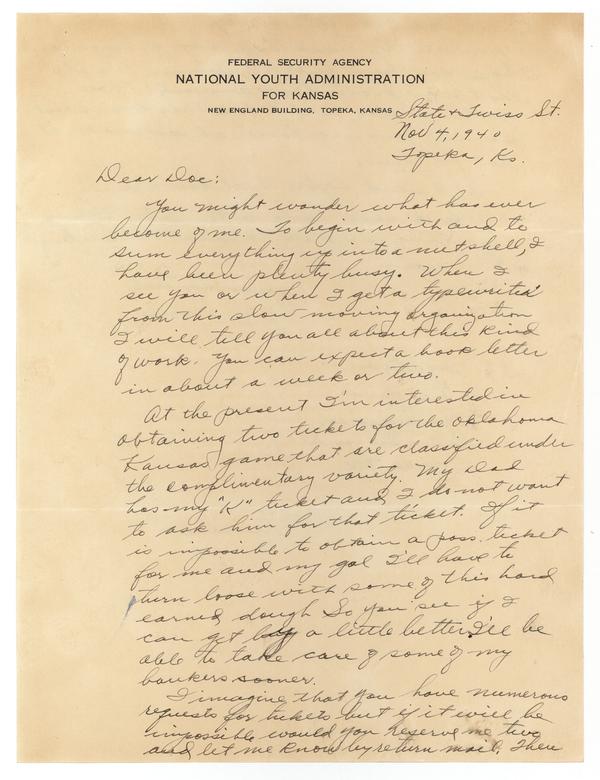 FEDERAL SECURITY AGENCY
NATIONAL YOUTH ADMINISTRATION
FOR KANSAS
NEW ENGLAND BUILDING, TOPEKA, KANSAS
State & Twiss St.
Nov 4, 1940
Topeka, Ks.
Dear Doc:
You might wonder what has ever
become of me. To begin with and to
sum everything up into a nutshell, I
have been plenty busy. When I
see you or when I get a typewriter
from this slow moving organization
I will tell you all about this kind
of work. You can expect a book letter
in about a week or two.
At the present I'm interested in
obtaining two tickets for the Oklahoma
Kansas game that are classified under
the complimentary variety. My Dad
has my "K" ticket and I do not want
to ask him for that ticket. If it
is impossible to obtain a pass ticket
for me and my gal I'll have to
turn loose with some of this hard
earned dough So you see if I
can get by a little better I'll be
able to take care of some of my
bankers sooner.
I imagine that you have numerous
requests for tickets but if it will be
impossible would you reserve me two
and let me know by return mail. Then